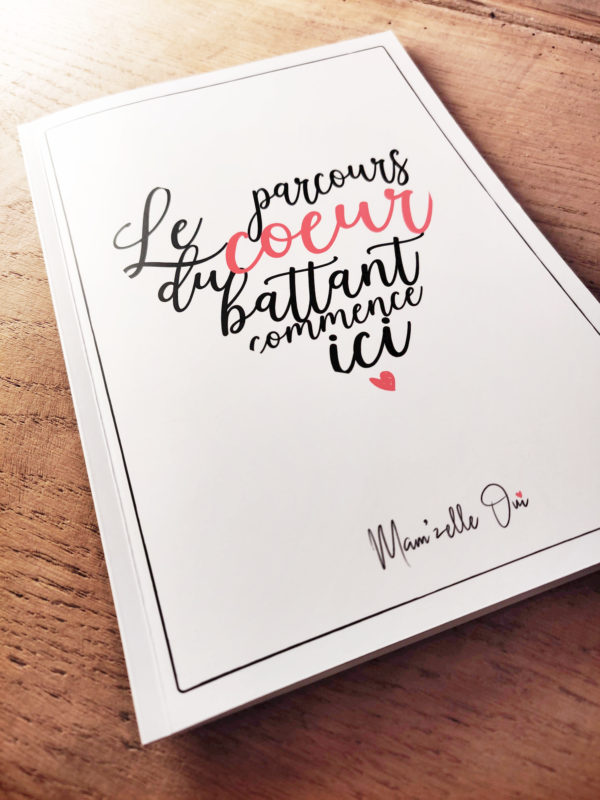 Le parcours
du coeur
battant
commence
ici
Mam'zelle Oui